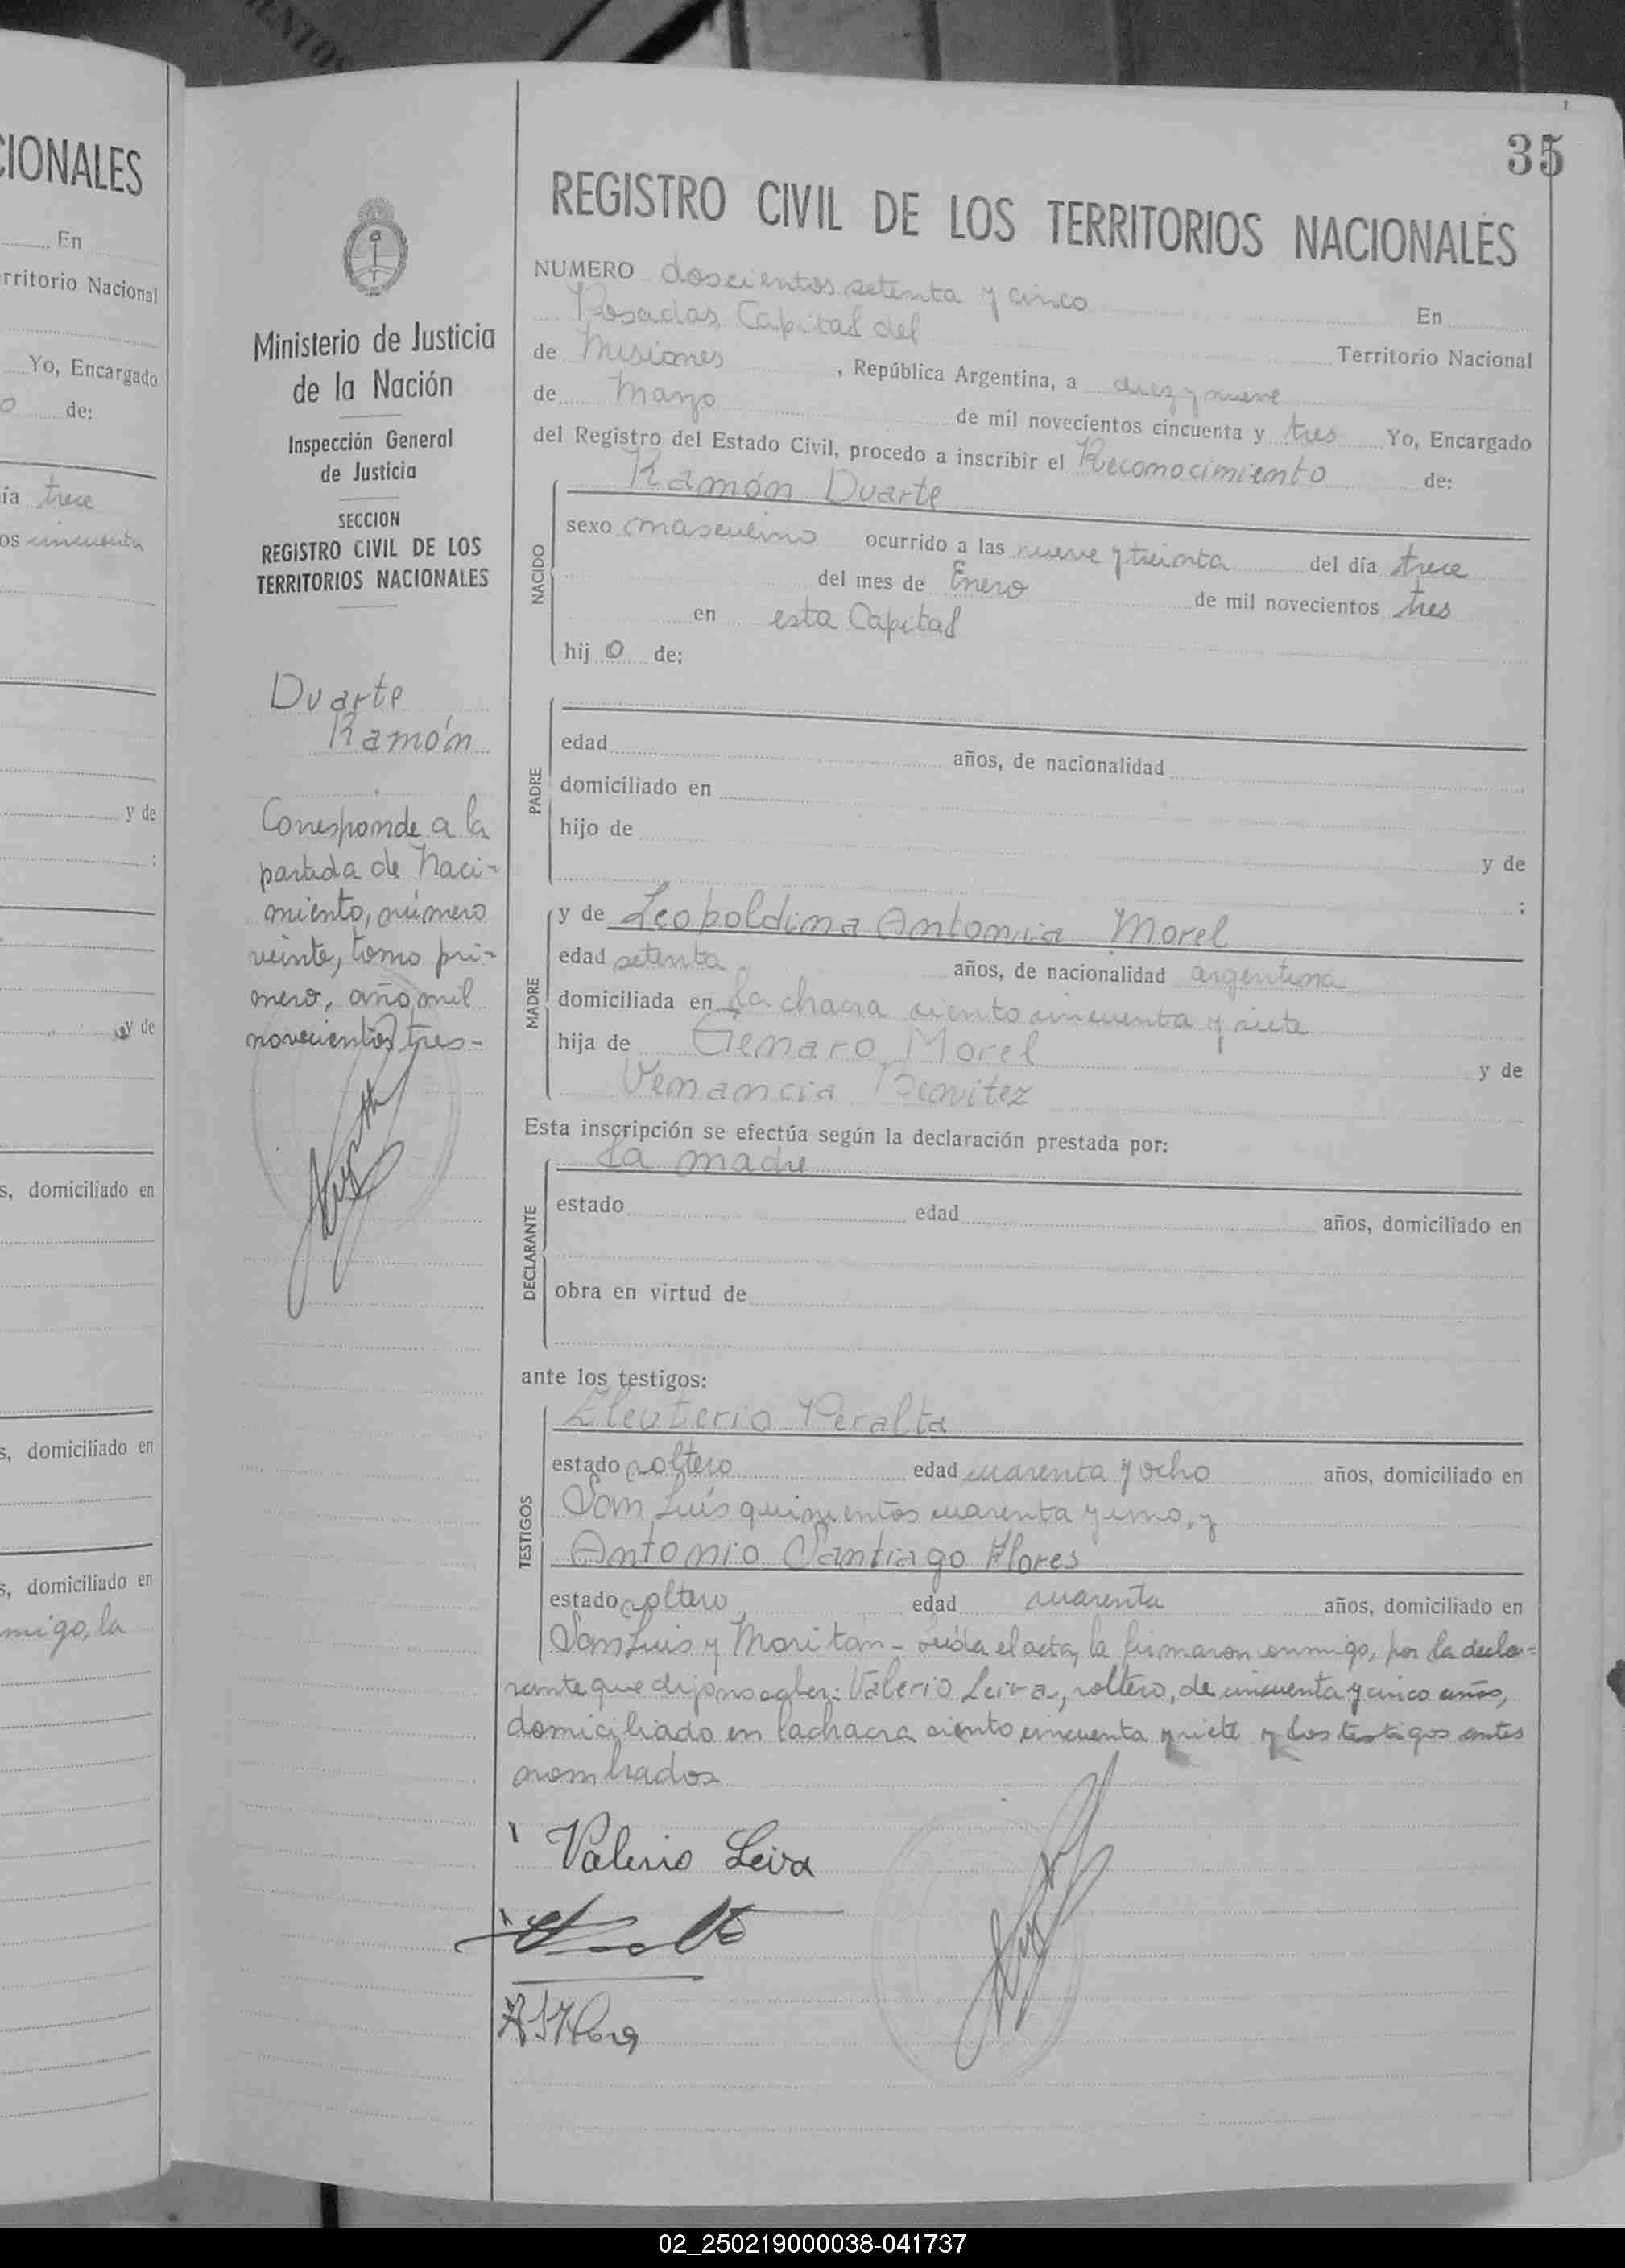 IENTOS
CIONALES
En
rritorio Nacional
Yo, Encargado
o de:
ía trece
os cincuenta
y de
y de
s, domiciliado en
s, domiciliado en
s, domiciliado en
migo, la
35
Ministerio de Justicia
de la Nación
Inspección General
de Justicia
SECCION
REGISTRO CIVIL DE LOS
TERRITORIOS NACIONALES
Duarte
Ramón
Corresponde a la
partida de Naci-
miento, número
veinte, tomo pri-
mero, año mil
novecientos tres-
REGISTRO CIVIL DE LOS TERRITORIOS NACIONALES
NUMERO doscientos setenta y cinco En
Posadas, Capital del Territorio Nacional
de Misiones, República Argentina, a diez y nueve
de Marzo de mil novecientos cincuenta y tres Yo, Encargado
del Registro del Estado Civil, procedo a inscribir el Reconocimiento de:
Ramón Duarte
NACIDO
sexo masculino ocurrido a las nueve y treinta del día trece
del mes de Enero de mil novecientos tres
en esta Capital
hij o de;
PADRE
edad años, de nacionalidad
domiciliado en
hijo de
y de
;
MADRE
y de Leopoldina Antonia Morel
edad setenta años, de nacionalidad argentina
domiciliada en La chacra ciento cincuenta y siete
hija de Genaro Morel y de
Venancia Benitez
Esta inscripción se efectúa según la declaración prestada por:
La madre
DECLARANTE
estado edad años, domiciliado en
obra en virtud de
ante los testigos:
TESTIGOS
Eleuterio Peralta
estado soltero edad cuarenta y ocho años, domiciliado en
San Luis quinientos cuarenta y uno, y
Antonio Santiago Flores
estado soltero edad cuarenta años, domiciliado en
San Luis y Moritan - Leída el acta, la firmaron conmigo, por la decla-
rante que dijo no saber: Valerio Leiva, soltero, de cincuenta y cinco años,
domiciliado en la chacra ciento cincuenta y siete y los testigos antes
nombrados
Valerio Leiva
02_250219000038-041737